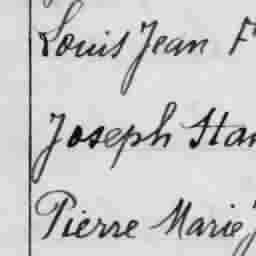 Louis Jean F
Joseph Stan
Pierre Marie J